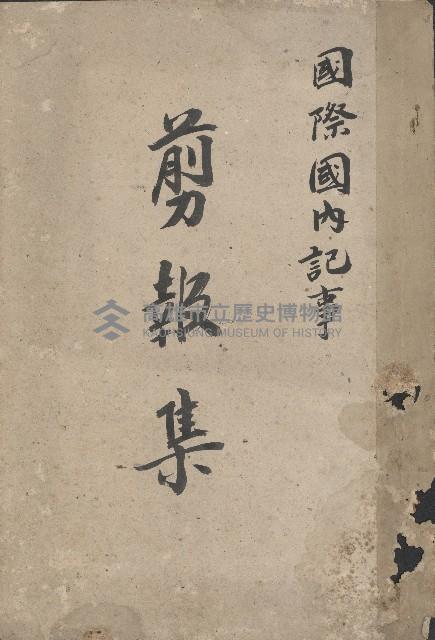 國際國內記事
剪報集
高雄市立歷史博物館
KAOHSIUNG MUSEUM OF HISTORY